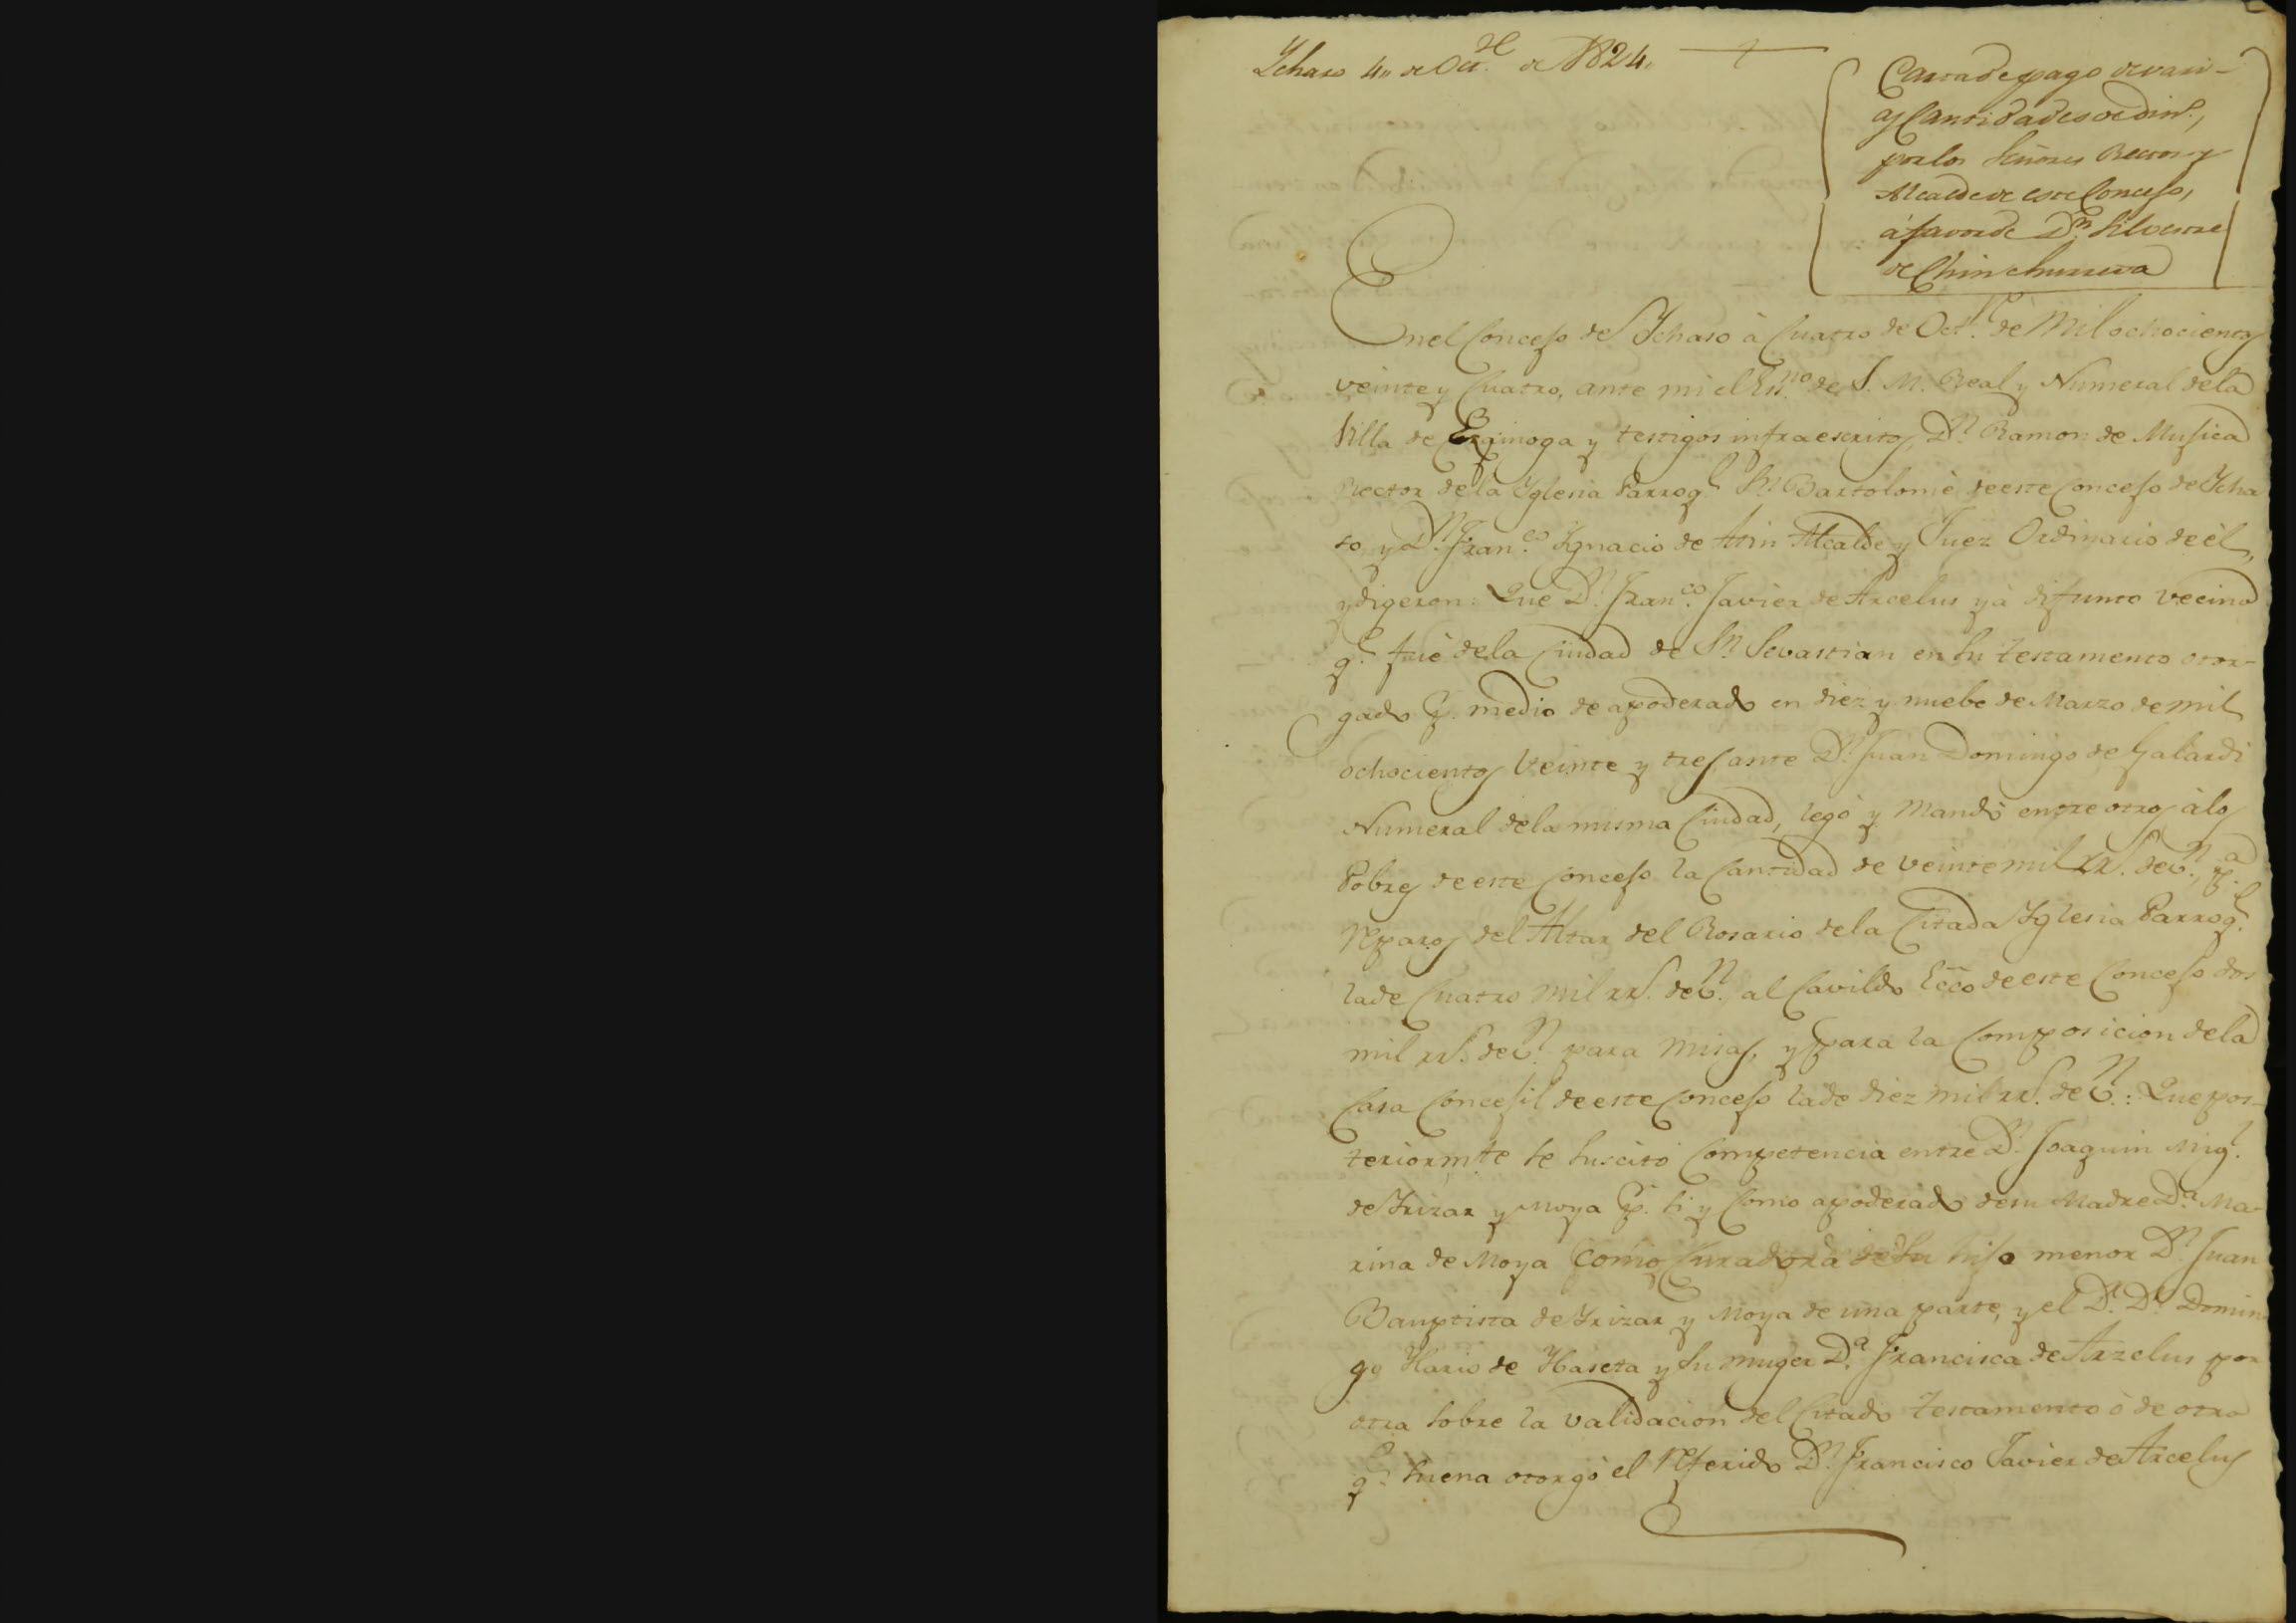 Ychaso 4,, de Oct.re de 1824,,
Carta de pago de vari-
as Cantidades de din.o,
por los Señores Rector y
Alcalde de este Concejo,
á favor de D.n Silvestre
de Chinchurreta
En el Concejo de Ychaso à Cuatro de Oct.re de Mil ochocientos
veinte y Cuatro, ante mi el Ess.no de S. M. Real y Numeral de la
Villa de Ezquioga y testigos infraescritos, D.n Ramon de Musica
Rector de la Yglesia Parroq.l S.n Bartolomè de este Concejo de Ycha
so y D.n Fran.co Ygnacio de Asin Alcalde y Juez Ordinario de èl,
y digeron: Que D.n Fran.co Javier de Arcelus yà difunto vecino
q.e fuè de la Ciudad de S.n Sevastian en su testamento otor-
gado p.r medio de apoderado en diez y nuebe de Marzo de mil
ochocientos veinte y tres ante D.n Juan Domingo de Galardi
Numeral de la misma Ciudad, legò y Mandò entre otros à los
Pobres de este Concejo la Cantidad de veinte mil rr.s de v.n, p.a
reparos del Altar del Rosario de la Citada Yglesia Parroq.l
la de Cuatro mil rr.s de v.n, al Cavildo Ecco de este Concejo dos
mil rr.s de v.n para misas, y para la Composicion de la
Casa Concejil de este Concejo la de diez mil rr.s de v.n: Que pos-
teriorm.te se suscitò Competencia entre D.n Joaquin Mig.l
de Yrizar y Moya p.r si y Como apoderado de su Madre D.a Ma-
rina de Moya Como Curadora de su hijo menor D.n Juan
Bauptista de Yrizar y Moya de una parte, y el D.r D.n Domin
go Ylario de Ybaseta y su muger D.a Francisca de Arzelus por
otra sobre la validacion del Citado testamento ò de otro
q.e suena otorgò el referido D.n Francisco Javier de Arcelus